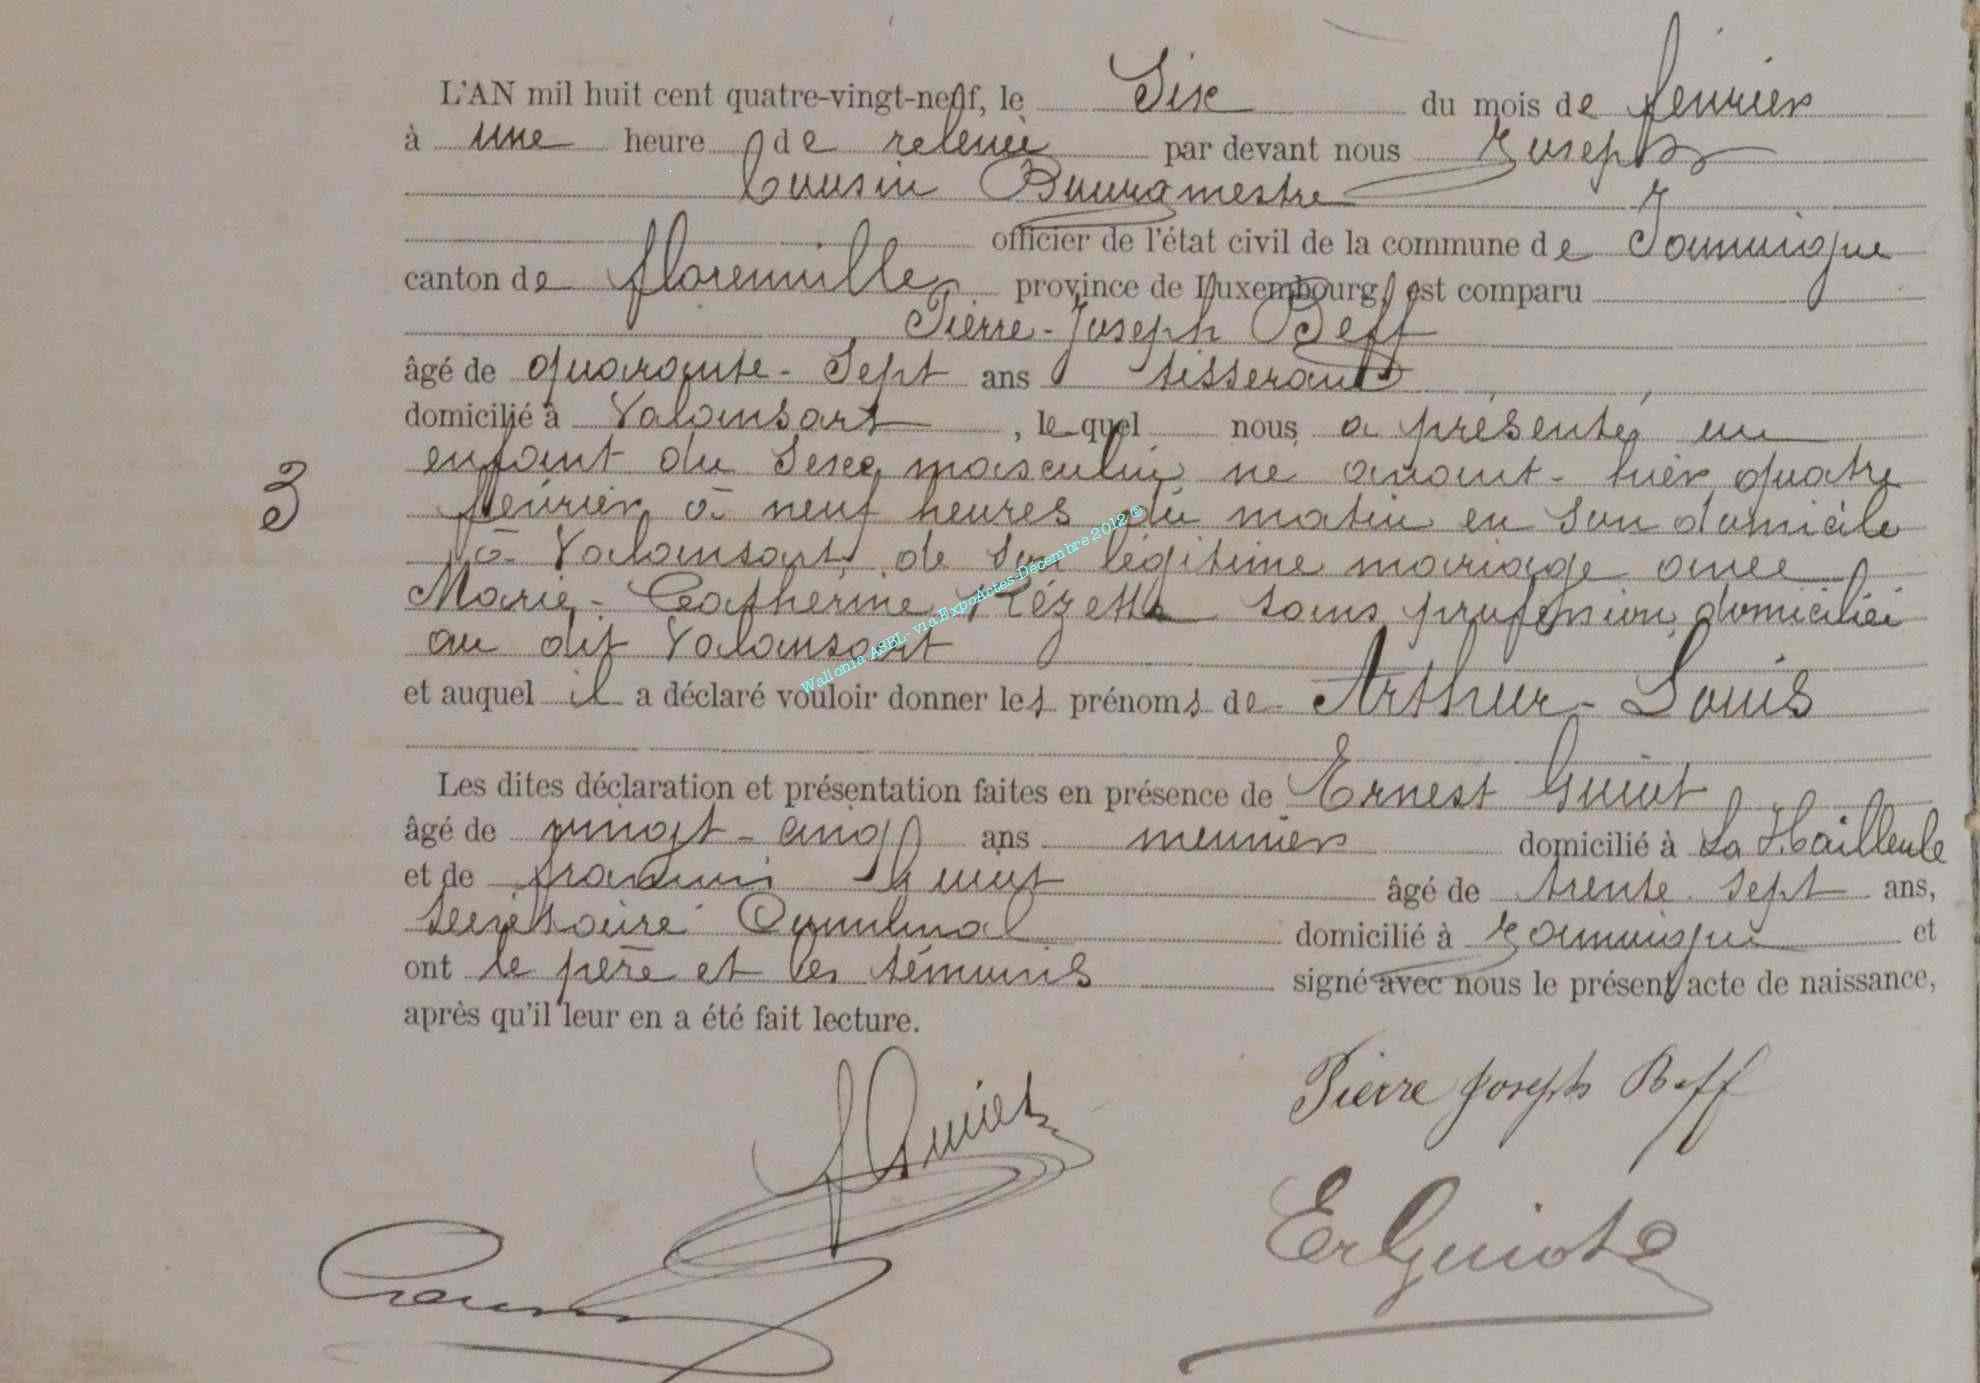 L'AN mil huit cent quatre-vingt-neuf, le Six du mois de février
à une heure de relevée par devant nous Joseph
Cousin Bourgmestre
officier de l'état civil de la commune de Jamoigne
canton de florenville province de Luxembourg, est comparu
Pierre-Joseph Beff
âgé de quarante-Sept ans tisserand
domicilié à Valansart, lequel nous a présenté un
enfant du Sexe masculin né avant-hier quatre
février à neuf heures du matin en Son domicile
à Valansart, de Son légitime mariage avec
3
Marie-Catherine Rézette sans profession domiciliée
au dit Valansart
et auquel il a déclaré vouloir donner les prénoms de Arthur-Louis
Les dites déclaration et présentation faites en présence de Ernest Guiot
âgé de vingt-cinq ans meunier domicilié à La Hailleule
et de françois Guiot âgé de trente sept ans,
Secrétaire Communal domicilié à Jamoigne et
ont le père et les témoins signé avec nous le présent acte de naissance,
après qu'il leur en a été fait lecture.
Pierre Joseph Beff
f Guiot
Er Guiot
Wallonia ASBL- via ExpoActes-Décembre 2012 ©